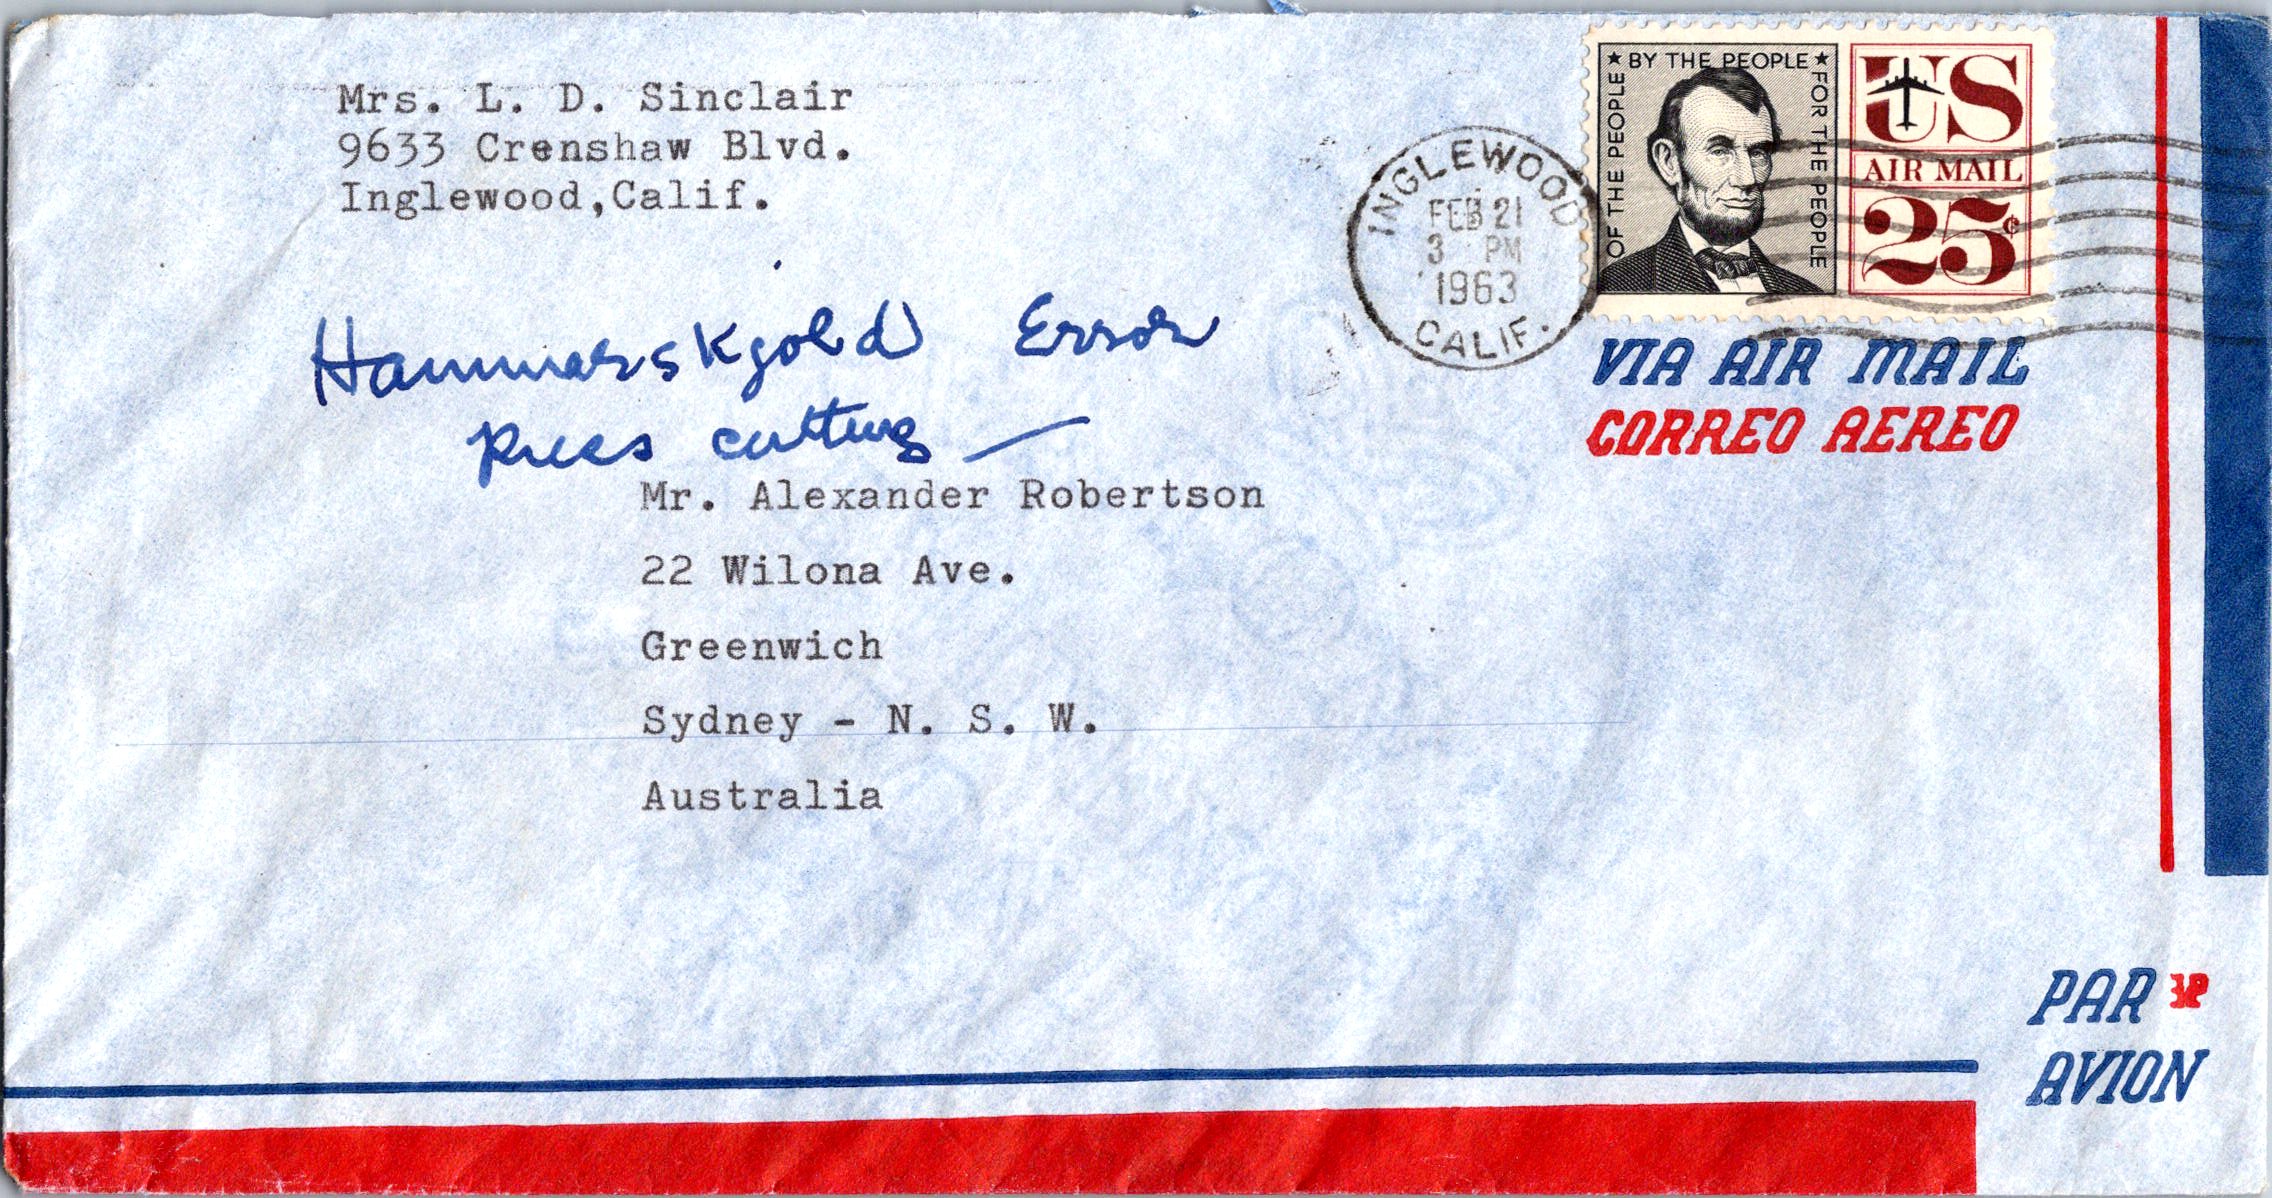 Mrs. L. D. Sinclair
9633 Crenshaw Blvd.
Inglewood,Calif.
INGLEWOOD
FEB 21
3 PM
1963
CALIF.
OF THE PEOPLE ★ BY THE PEOPLE ★ FOR THE PEOPLE
US
AIR MAIL
25¢
VIA AIR MAIL
CORREO AEREO
Hammarskgold Error
Press cutting —
Mr. Alexander Robertson
22 Wilona Ave.
Greenwich
Sydney - N. S. W.
Australia
PAR
AVION